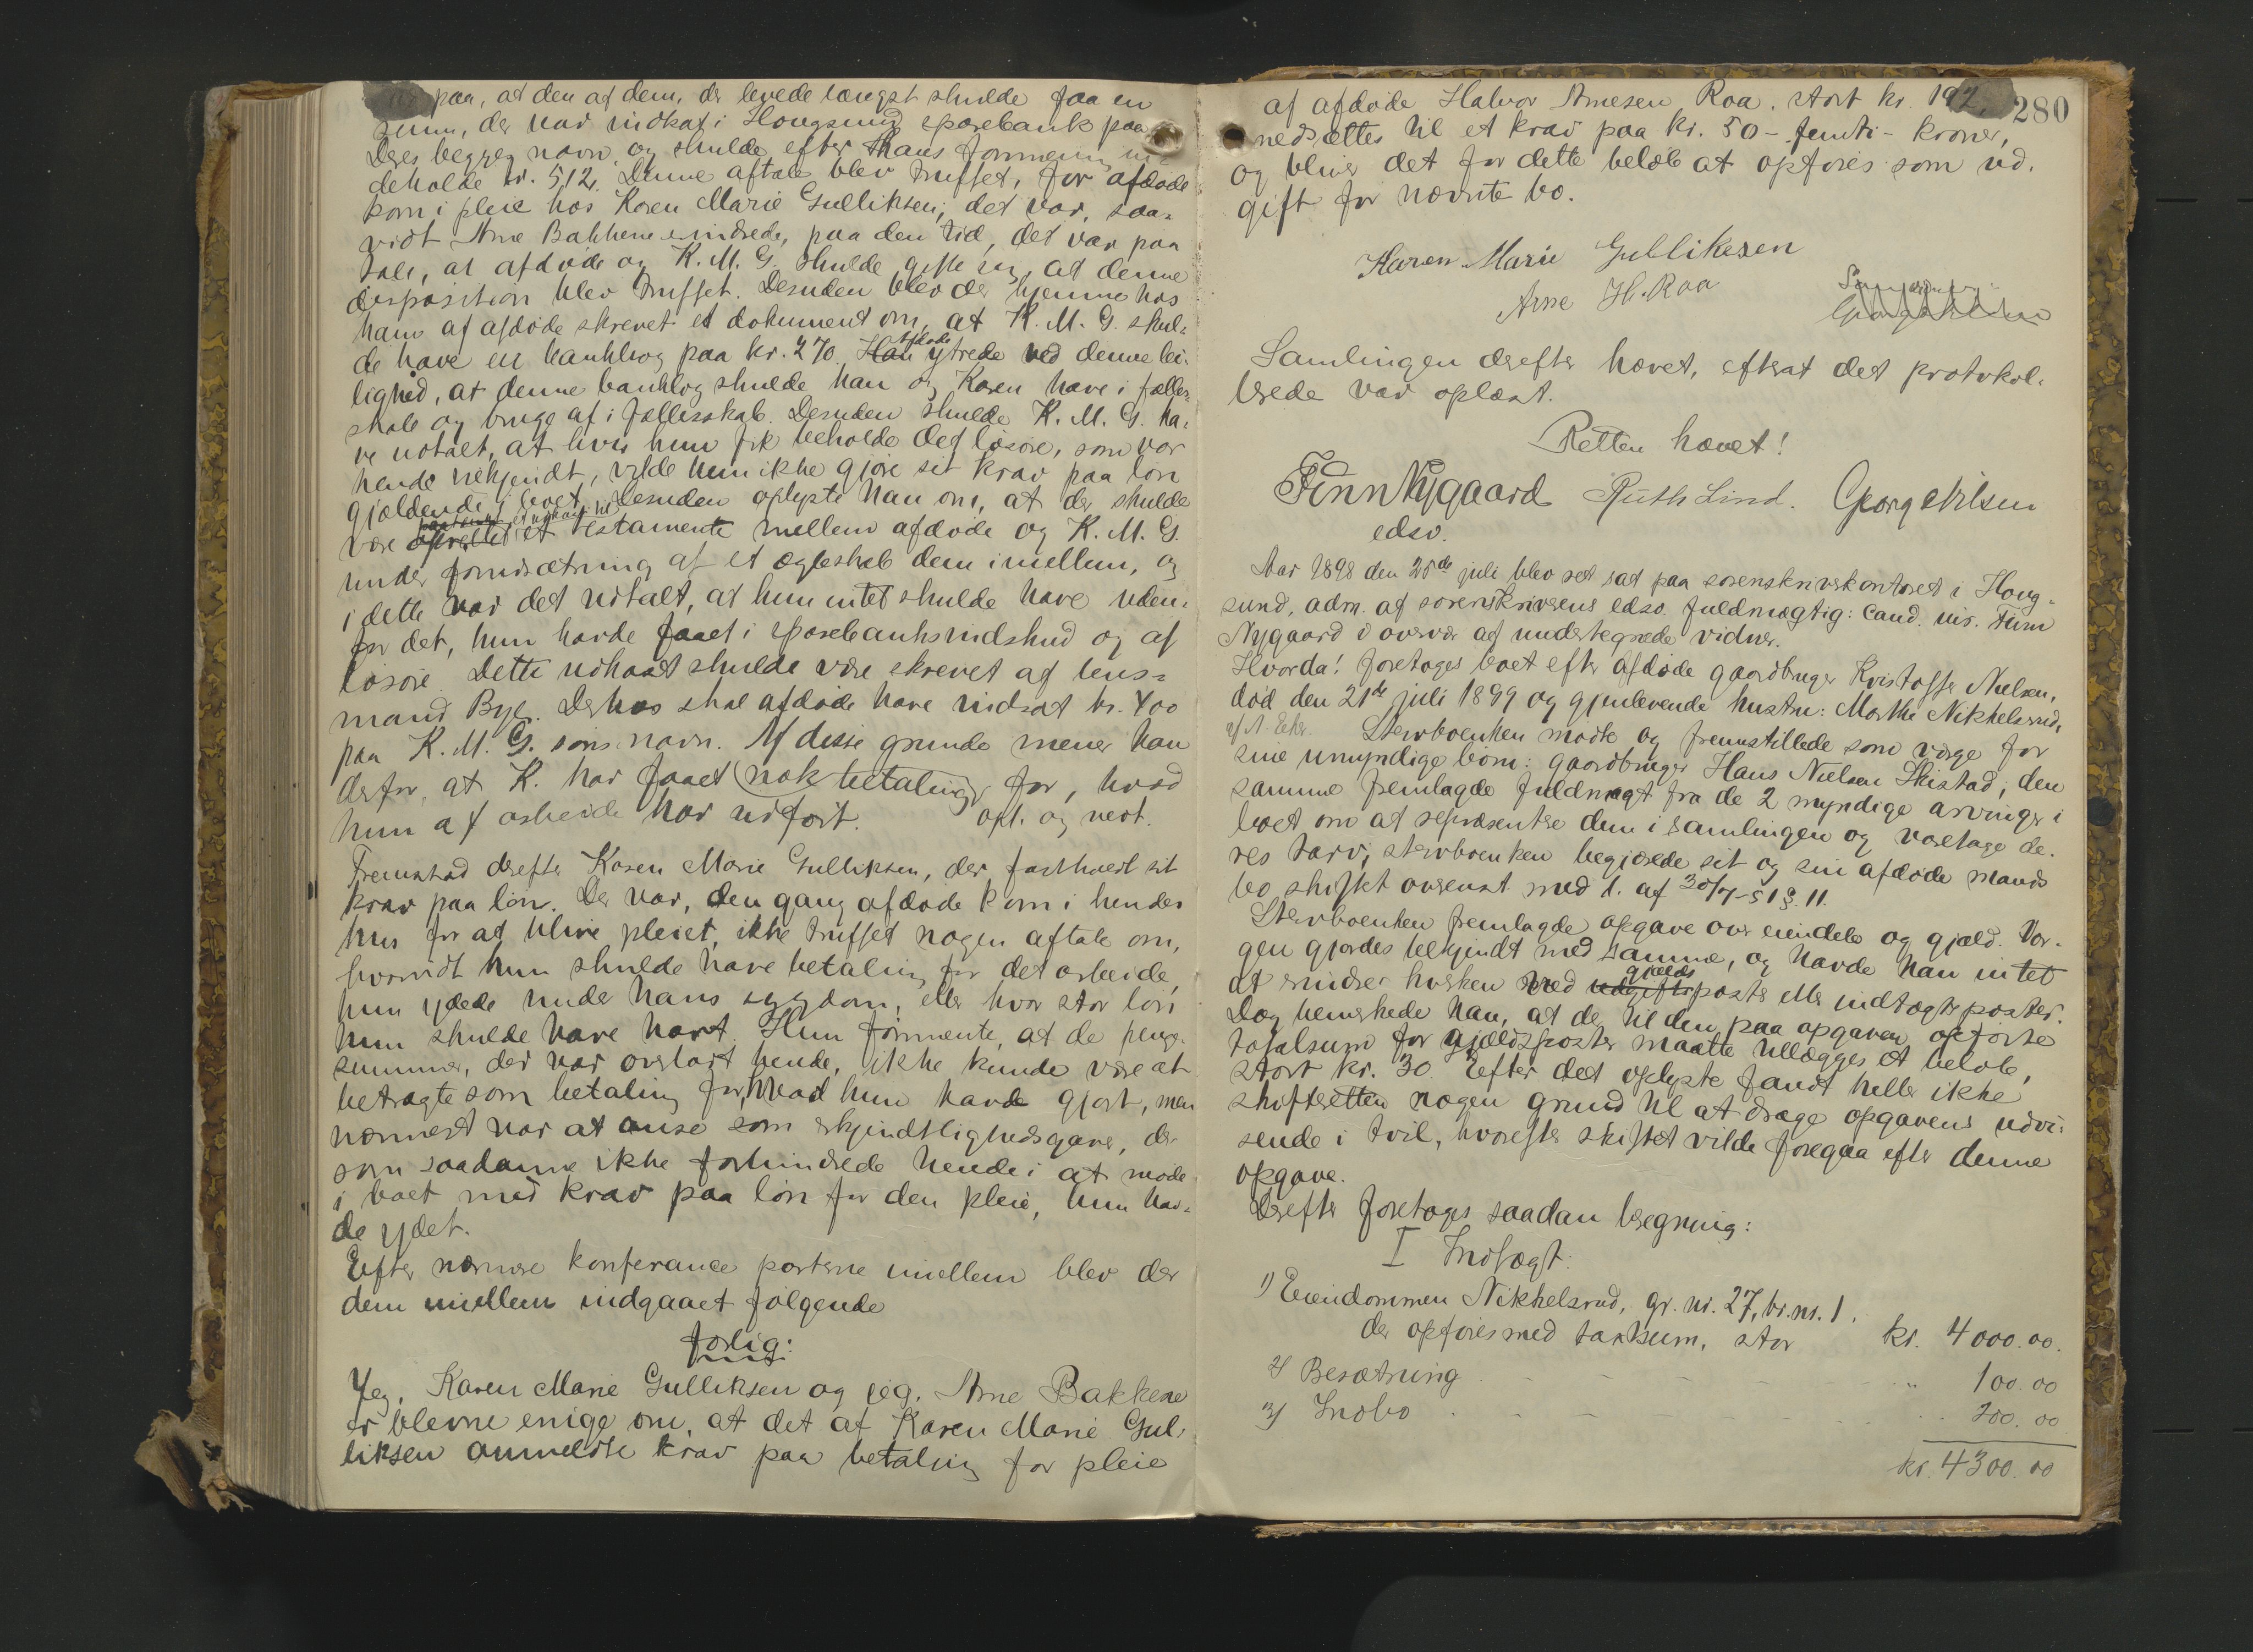 paa, at den af dem, der levede længst skulde faa en
sum, der var indsat i Hougsund sparebank paa
deres begges navn og skulde efter hans formening in-
deholde kr. 512. Denne aftale blev truffet, før afdøde
kom i pleie hos Karen Marie Gulliksen, det var, saa-
vidt Arne Bakkene erindrede, paa den tid, det var paa
tale, at afdøde og K. M. G. skulde gifte sig, at denne
disposition blev truffet. Desuden blev der hjemme hos
ham af afdøde skrevet et dokument om, at K. M. G. skul-
de have en bankbog paa kr. 270. Han afdøde ytrede ved denne lei-
lighed, at denne bankbog skulde han og Karen have i fælles-
skab og bruge af i fællesskab. Desuden skulde K. M. G. ha-
ve udtalt, at hvis hun fik beholde det løsøre, som var
hende vekjendt, vilde hun ikke gjøre sit krav paa løn
gjældende i boet. Desuden oplyste han om, at der skulde
være oprettet et udkast til et testamente mellem afdøde og K. M. G.
under forudsætning af et ægteskab dem imellem, og
i dette var det udtalt, at hun intet skulde have uden-
for det, hun havde faaet i sparebanksindskud og af
løsøre. Dette udkast skulde være skrevet af lens-
mand Bye. Derhos skal afdøde have indsat kr. 400
paa K. M. G. søns navn. Af disse grunde mener han
derfor, at K. har faaet nok betaling for, hvad
hun af arbeide har udført. opl. og vedt.
Fremstod derefter Karen Marie Gulliksen, der fastholdt sit
krav paa løn. Der var, den gang afdøde kom i hendes
hus for at blive pleiet, ikke truffet nogen aftale om,
hvorvidt hun skulde have betaling for det arbeide,
hun ydede under hans sygdom, eller hvor stor løn
hun skulde have havt. Hun formente, at de penge-
summer, der var overladt hende, ikke kunde være at
betragte som betaling for, hvad hun havde gjort, men
nærmest var at anse som erkjendtlighedsgaver, der
som saadanne ikke forhindrede hende i at møde
i boet med krav paa løn for den pleie, hun hav-
de ydet.
Efter nærmere konferance parterne imellem blev der
dem imellem indgaaet følgende
forlig:
Jeg, Karen Marie Gulliksen og jeg, Arne Bakkene
er blevne enige om, at det af Karen Marie Gul-
liksen anmeldte krav paa betaling for pleie
280
af afdøde Halvor Arnesen Roa, stort kr. 192,
nedsættes til et krav paa kr. 50 - femti - kroner,
og bliver det for dette beløb at opføres som ud-
gift for nævnte bo.
Karen Marie Gullikesen
Arne H. Roa
Samlingen derefter hævet, efterat det protokol-
lerede var oplæst.
Retten hævet!
Finn Nygaard Ruth Lind. Georg Nilsen
edsv.
Aar 1898 den 25de juli blev ret sat paa sorenskriverkontoret i Houg-
sund, adm. af sorenskriverens edsv. fuldmægtig: cand. jur. Finn
Nygaard i overvær af undertegnede vidner.
Hvorda! foretoges boet efter afdøde gaardbruger Kristoffer Nielsen,
død den 21de juli 1899 og gjenlevende hustru: Marthe Nikkelsrud,
af N. Eker. Stervboenken mødte og fremstillede som værge for
sine umyndige børn: gaardbruger Hans Nielsen Skistad, den
samme fremlagde fuldmagt fra de 2 myndige arvinger i
boet om at repræsentere dem i samlingen og varetage de-
res tarv; stervboenken begjærede sit og sin afdøde mands
bo skiftet overenst. med l. af 30/7-51 §. 11.
Stervboenken fremlagde opgave over eiendele og gjæld. Vær-
gen gjordes bekjendt med samme, og havde han intet
at erindre hverken ved udgifts gjældsposter eller indtægtsposter.
Dog bemærkede han, at der til den paa opgaven opførte
totalsum for gjældsposter maatte tillægges et beløb,
stort kr. 30. Efter det oplyste fandt heller ikke
skifteretten nogen grund til at drage opgavens udvi-
sende i tvil, hvorefter skiftet vilde foregaa efter denne
opgave.
Derefter foretoges saadan beregning:
I Indtægt:
1) Eiendommen Nikkelsrud, gr. nr. 27, br. nr. 1.
der opføres med taxtsum, stor kr. 4000.00.
2) Besætning " 100.00
3) Indbo 200.00
kr. 4300.00